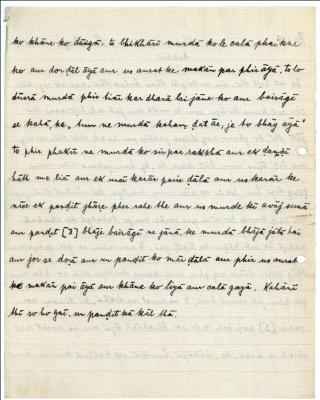 ko khāne ko dūṅgā. to bhikhārī murdā ko le calā phaik ke
ko aur dor ḍāl āyā aur us aurat ke makān par phir āyā, to to
dūsrā murdā phir bīnī kar dharā lai jāne ko aur bairāgī
se kahā, ke, tum ne murdā kahaṃ ḍāt āe, je to bhāg āyā"
to phir phakīr ne murdā ko sir par rakkhā aur ek ḍanḍā
hāth me liā aur ek mōī karār paiu ḍālā aur us karār ke
nīce ek panḍit ghāre pher rahe the aur us murde kī avāj sunā
aur panḍit [3] bhāje bairāgī ne jānā, ke murdā bhājā jātā hai
aur jor se doṛā aur un panḍit ko mār ḍālā aur phir us aurat
ke makān pai āyā aur khāne ko liyā aur calā gayā. Kahānī
thī so ho gaī, un panḍit kā kāl thā.